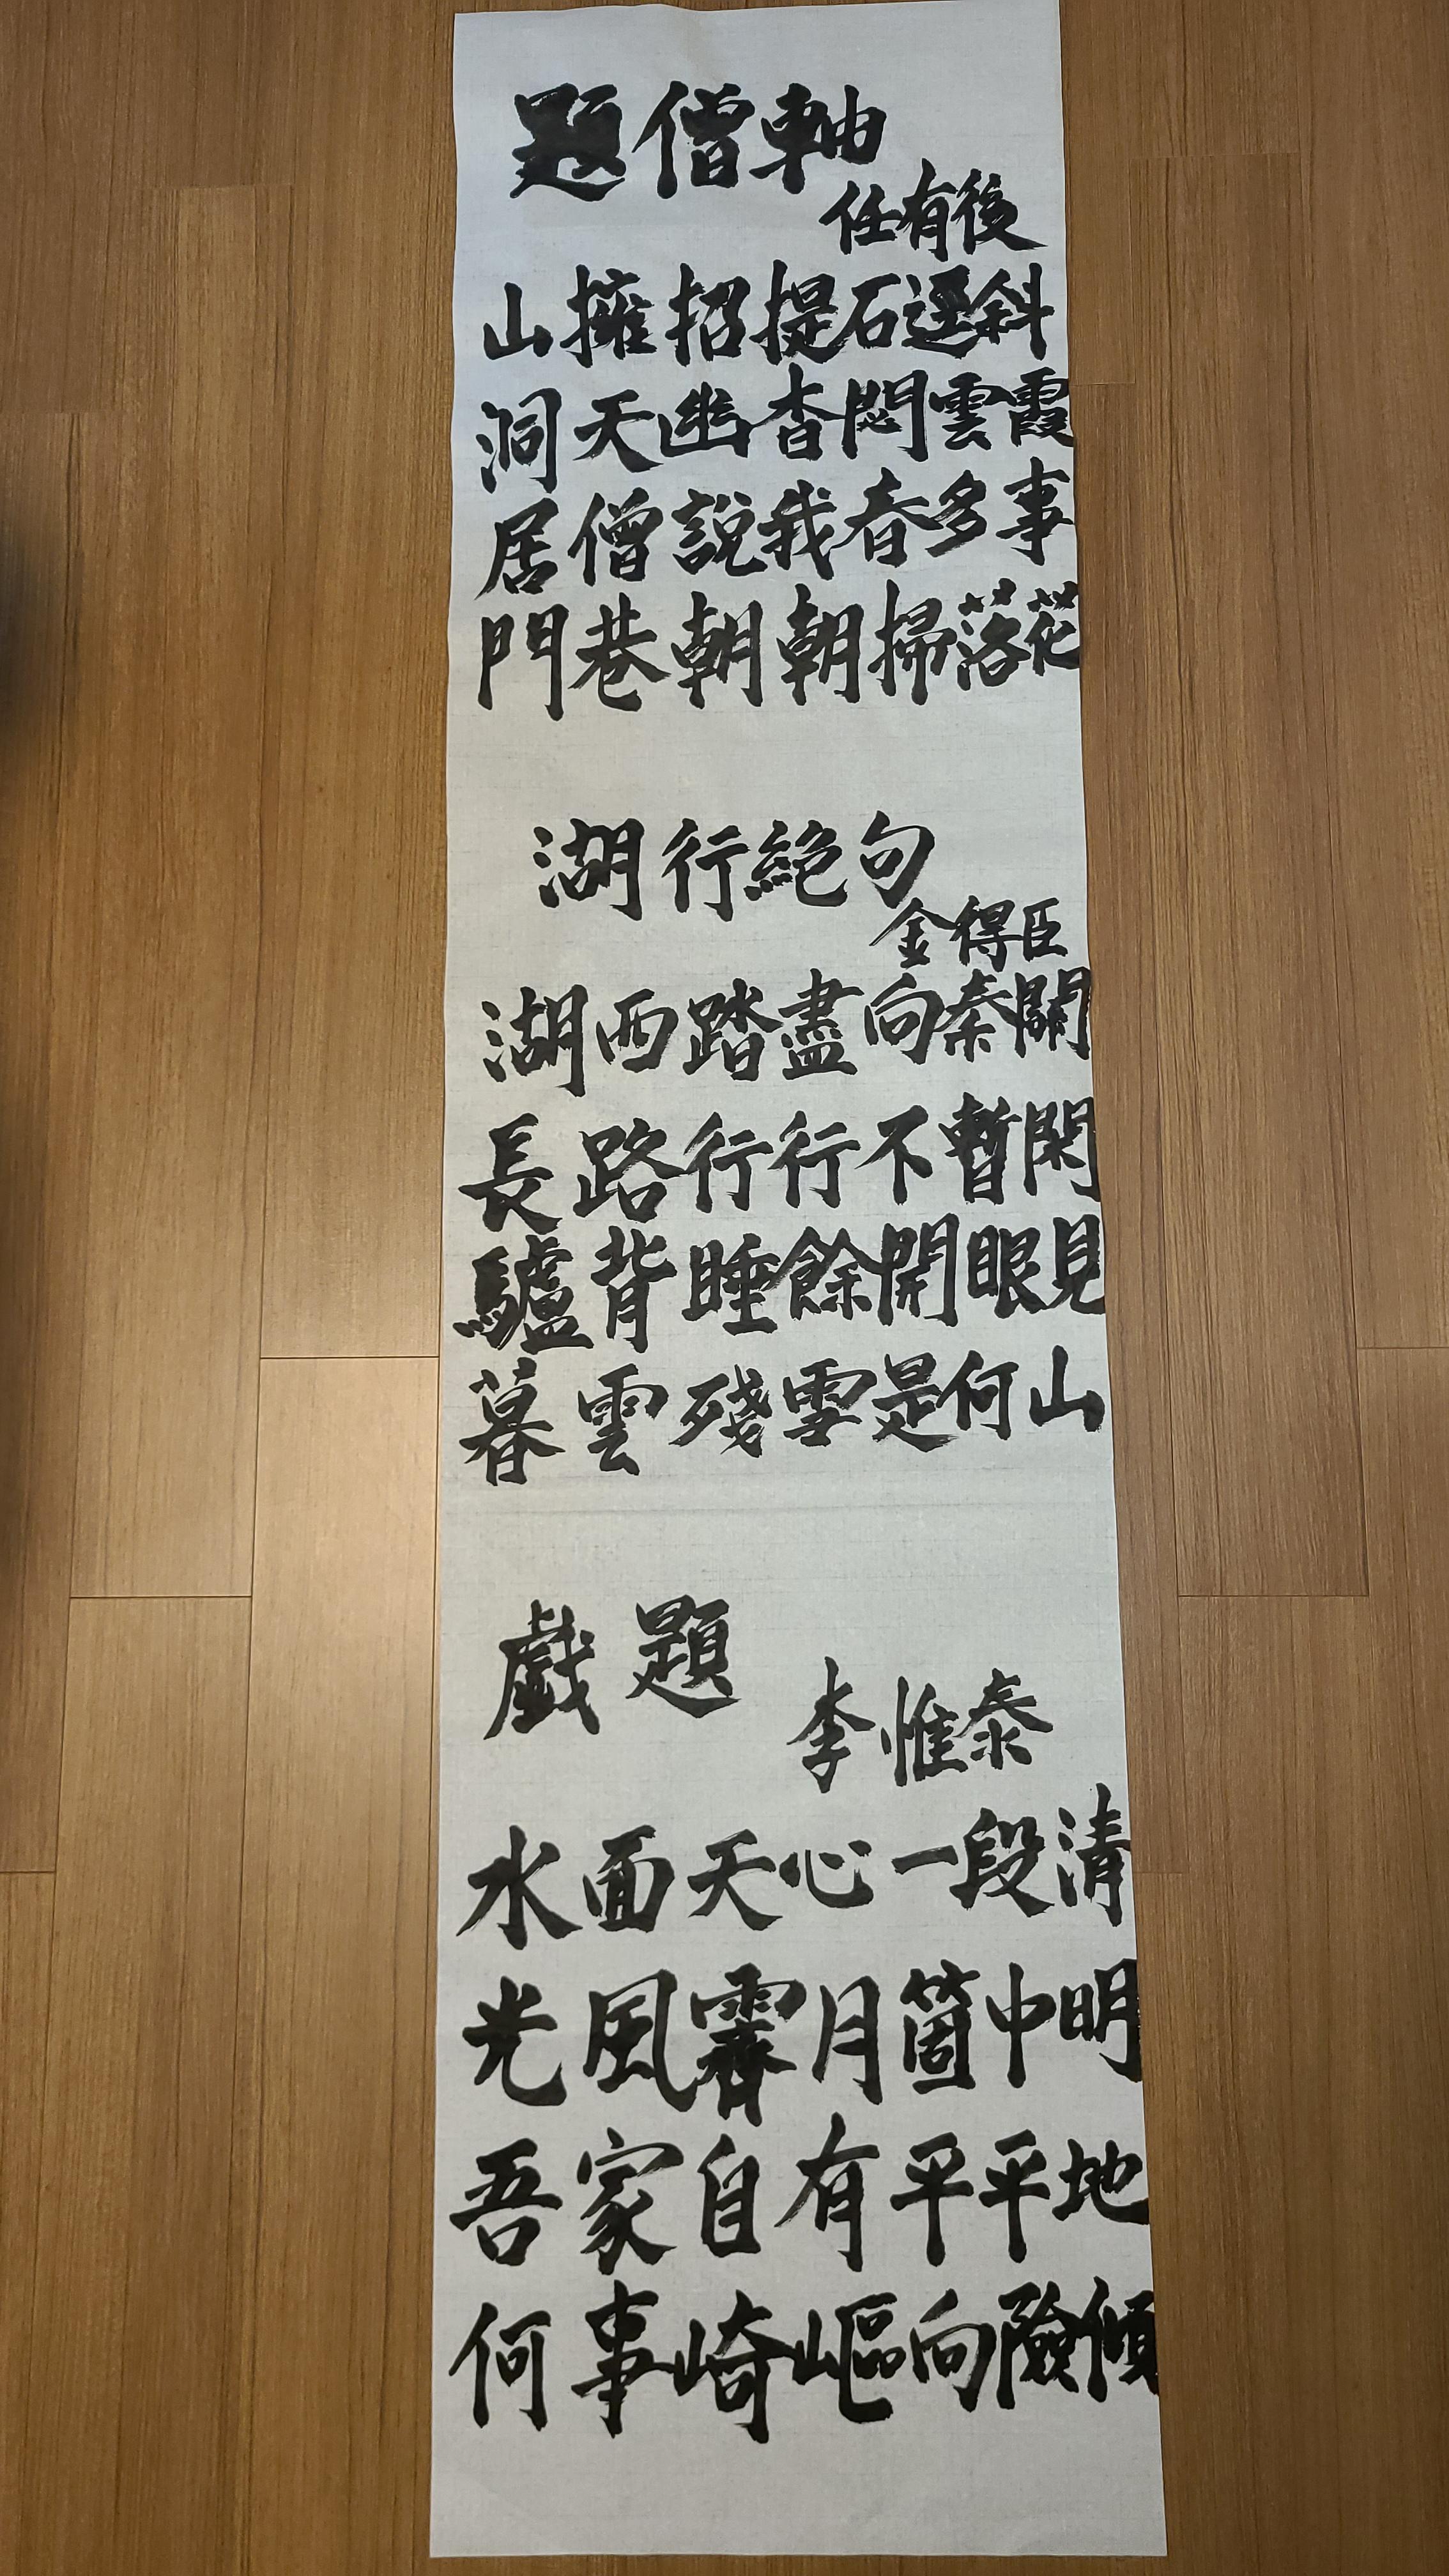 題僧軸
任有後
山擁招提石逕斜
洞天幽杳閟雲霞
居僧說我春多事
門巷朝朝掃落花
湖行絕句
金得臣
湖西踏盡向秦關
長路行行不暫閑
驢背睡餘開眼見
暮雲殘雪是何山
戲題
李惟泰
水面天心一段清
光風霽月箇中明
吾家自有平平地
何事崎嶇向險傾